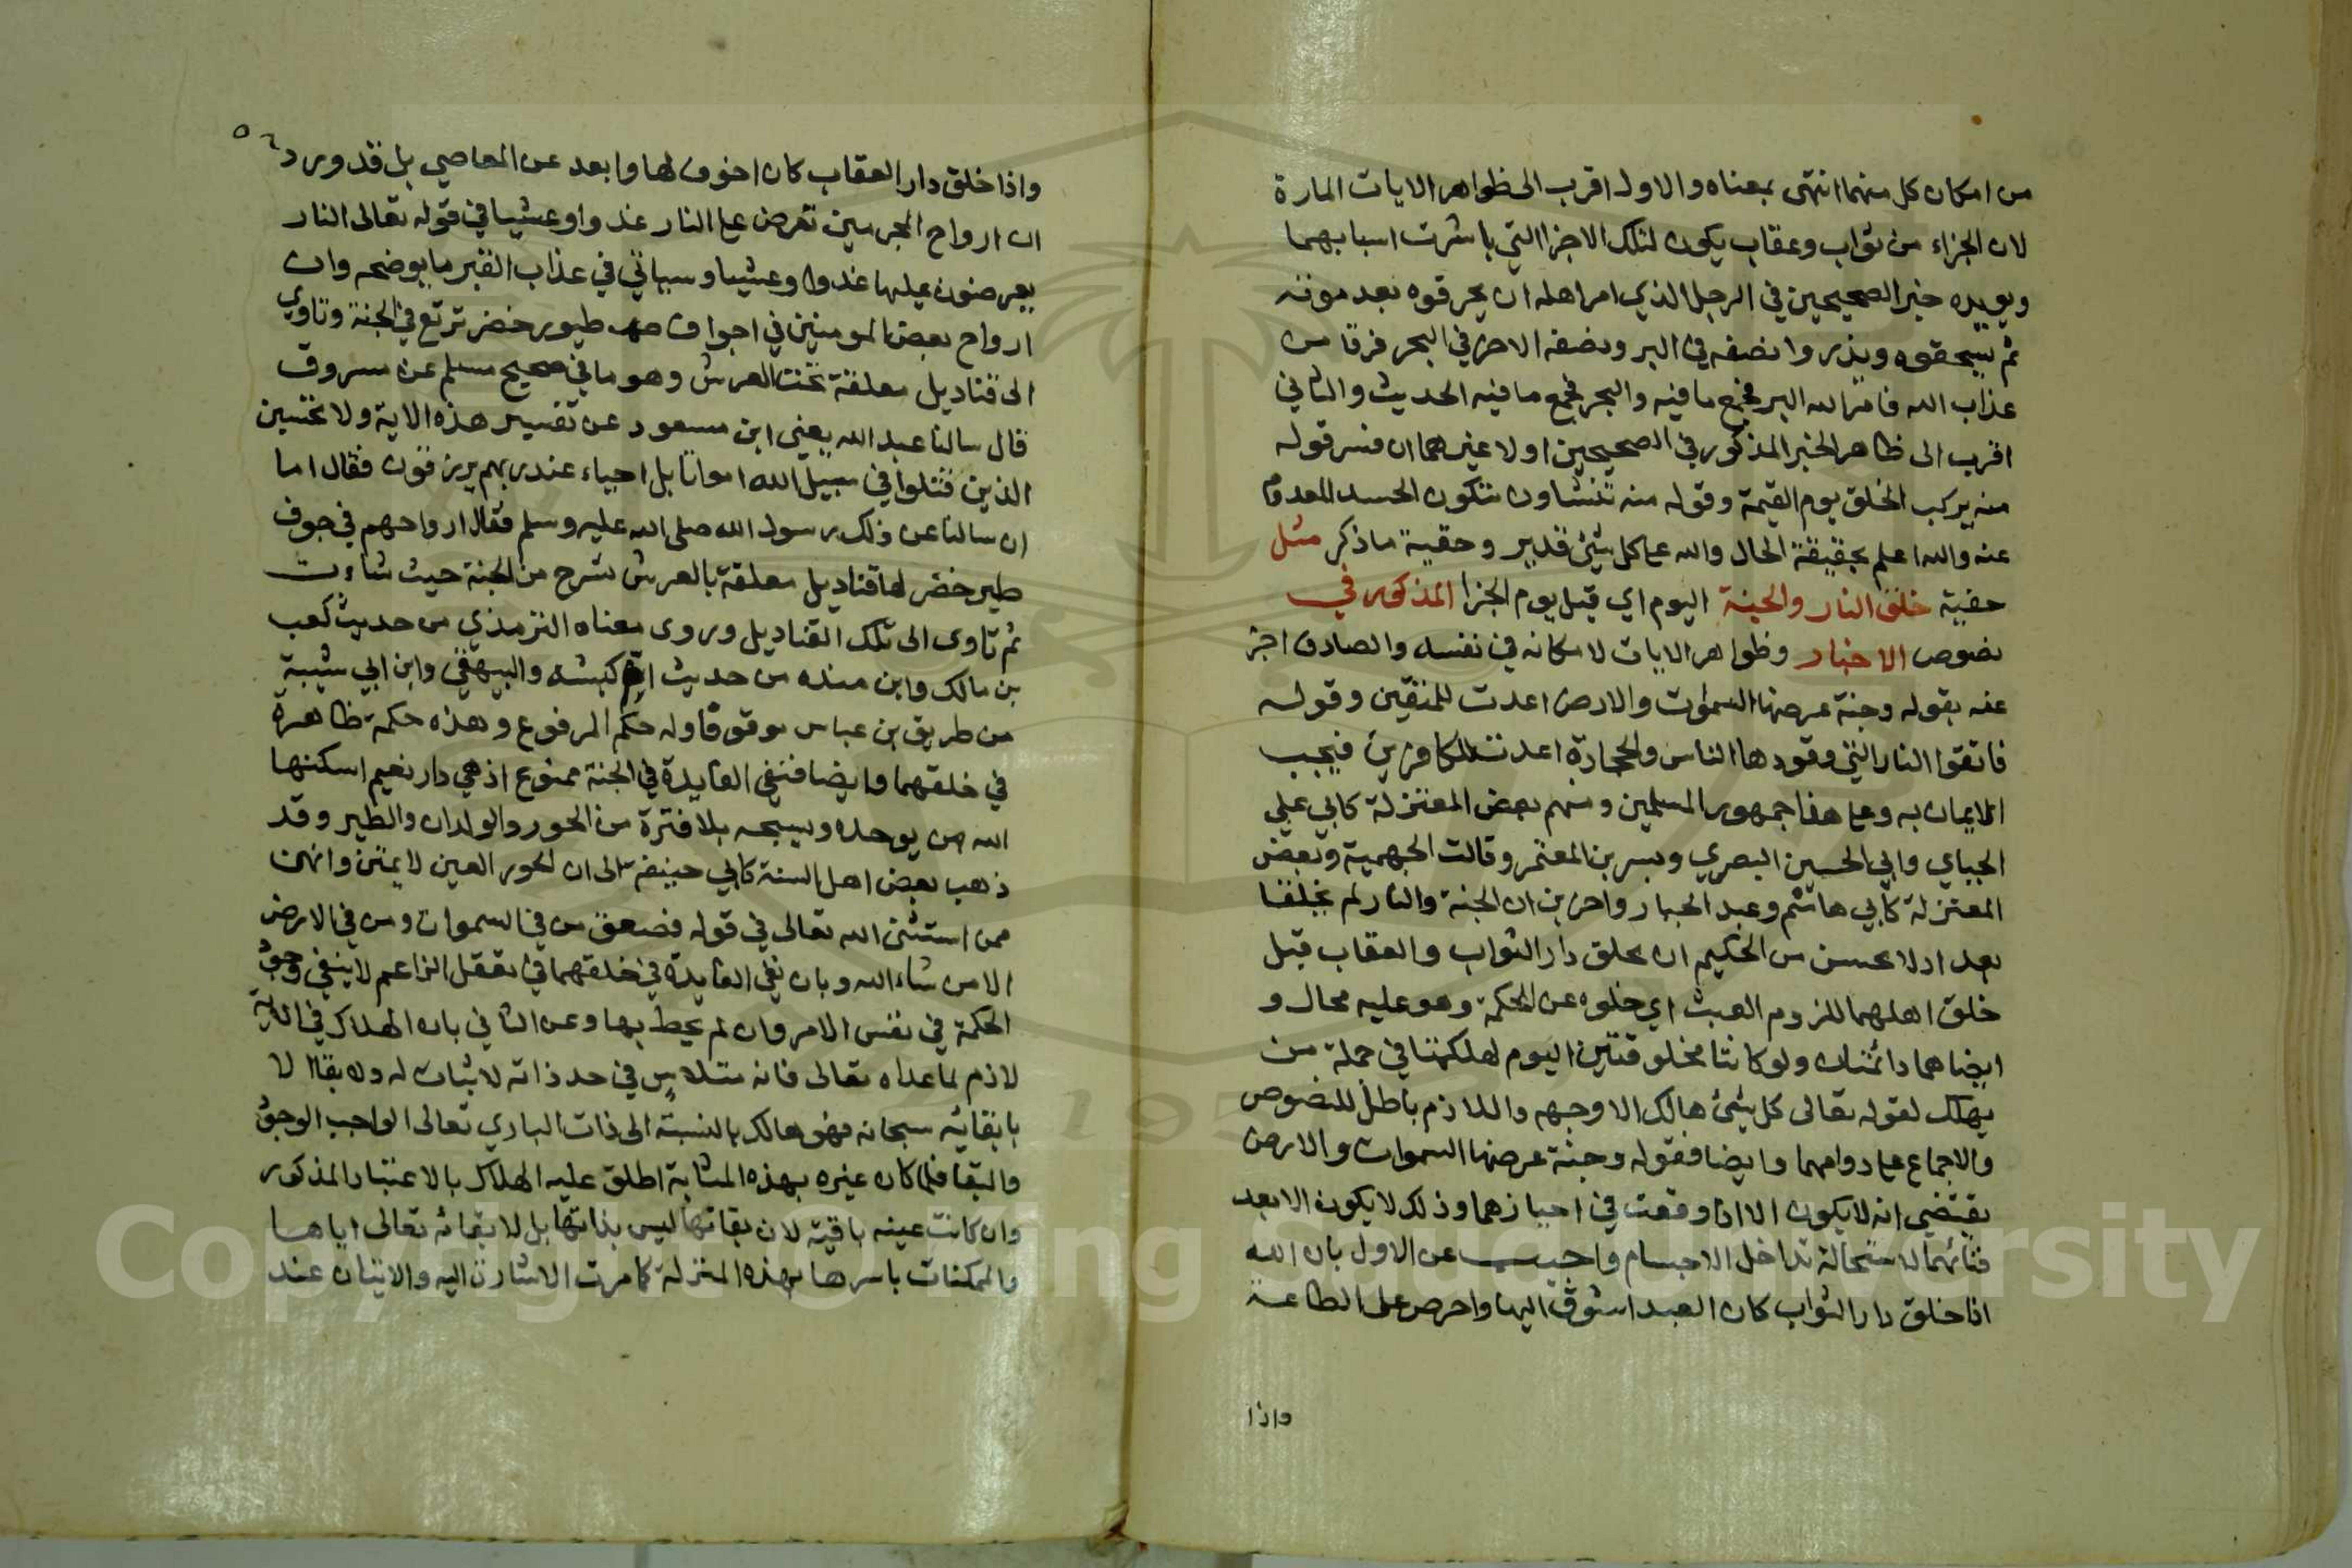 من امكان كل منهما انتهى بمعناه والاول اقرب الى ظواهر الايات المارة
لان الجزاء من ثواب وعقاب يكون لتلك الاجزا التي باشرت اسبابهما
ويويده خبر الصحيحين في الرجل الذي امر اهله ان يحرقوه بعد موته
ثم يسحقوه ويذروا نصفه في البر ونصفه الاخر في البحر فرقا من
عذاب الله فامر الله البر فجمع ما فيه والبحر فجمع ما فيه الحديث والثاني
اقرب الى ظاهر الخبر المذكور في الصحيحين اولا غيرهما ان فسر قوله
منه يركب الخلق يوم القيمة وقوله منه تنشاون بتكون الجسد المعدوم
عنه والله اعلم بحقيقة الحال والله على كل شيئ قدير وحقية ما ذكر مثل
حقية خلق النار والجنة اليوم اي قبل يوم الجزا المذكور في
نصوص الاخبار وظواهر الايات لامكانه في نفسه والصادق اخبر
عنه بقوله وجنة عرضها السموات والارض اعدت للمتقين وقوله
فاتقوا النار التي وقودها الناس والحجارة اعدت للكافرين فيجب
الايمان به وعلى هذا جمهور المسلمين ومنهم بعض المعتزلة كابي علي
الجباي وابي الحسين البصري وبسر بن المعتمر وقالت الجهمية وبعض
المعتزلة كابي هاشم وعبد الجبار واخرين ان الجنة والنار لم يخلقا
بعد اذ لا يحسن من الحكيم ان يخلق دار الثواب والعقاب قبل
خلق اهلهما للزوم العبث اي خلوه عن الحكمة وهو عليه محال و
ايضا هما دائمتان ولو كانتا مخلوقتين اليوم لهلكتا في جملة من
يهلك لقوله تعالى كل شيئ هالك الا وجهه واللازم باطل للنصوص
والاجماع على دوامهما وايضا فقوله وجنة عرضها السموات والارض
يقتضي انه لا يكون الا اذا وقعت في احيازهما وذلك لا يكون الا بعد
فنائهما لاستحالة تداخل الاجسام واجيب عن الاول بان الله
اذا خلق دار الثواب كان العبد اشوق اليها واحرص على الطاعة
واذا
٥٦
واذا خلق دار العقاب كان اخوف لها وابعد عن المعاصي بل قد ورد
ان ارواح المجرمين تعرض على النار غدوا وعشيا في قوله تعالى النار
يعرضون عليها غدوا وعشيا وسياتي في عذاب القبر ما يوضحه وان
ارواح بعض المومنين في اجواف طيور خضر ترتع في الجنة وتاوي
الى قناديل معلقة تحت العرش وهو ما في صحيح مسلم عن مسروق
قال سالنا عبد الله يعني ابن مسعود عن تفسير هذه الاية ولا تحسبن
الذين قتلوا في سبيل الله امواتا بل احياء عند ربهم يرزقون فقال اما
ان سالنا عن ذلك رسول الله صلى الله عليه وسلم فقال ارواحهم في جوف
طير خضر لها قناديل معلقة بالعرش تسرح من الجنة حيث شاءت
ثم تاوى الى تلك القناديل وروى معناه الترمذي من حديث كعب
بن مالك وابن منده من حديث ام كبشه والبيهقي وابن ابي شيبة
من طريق بن عباس موقوفا وله حكم المرفوع وهذه حكمة ظاهرة
في خلقهما وايضا فنفي الفايدة في الجنة ممنوع اذ هي دار نعيم اسكنها
الله من يوحده ويسبحه بلا فترة من الحور والولدان والطير وقد
ذهب بعض اهل السنة كابي حنيفة الى ان الحور العين لا يمتن وانهن
ممن استثنى الله تعالى في قوله فصعق من في السموات ومن في الارض
الا من شاء الله وبان نفي الفايدة في خلقهما في تعقل الزاعم لا ينفي وجود
الحكمة في نفس الامر وان لم يحط بها وعن الثاني بان الهلاك في الاية
لازم لما عداه تعالى فانه متلاس في حد ذاته لا ثبات له ولا بقا الا
بابقائه سبحانه فهو هالك بالنسبة الى ذات الباري تعالى الواجب الوجود
والبقا فلما كان غيره بهذه المثابة اطلق عليه الهلاك بالاعتبار المذكور
وان كانت عينه باقية لان بقائها ليس بذاتها بل لابقائه تعالى اياها
والممكنات باسرها بهذه المنزلة كما مرت الاشارة اليه والاتيان عند
Copyright © King Saud University